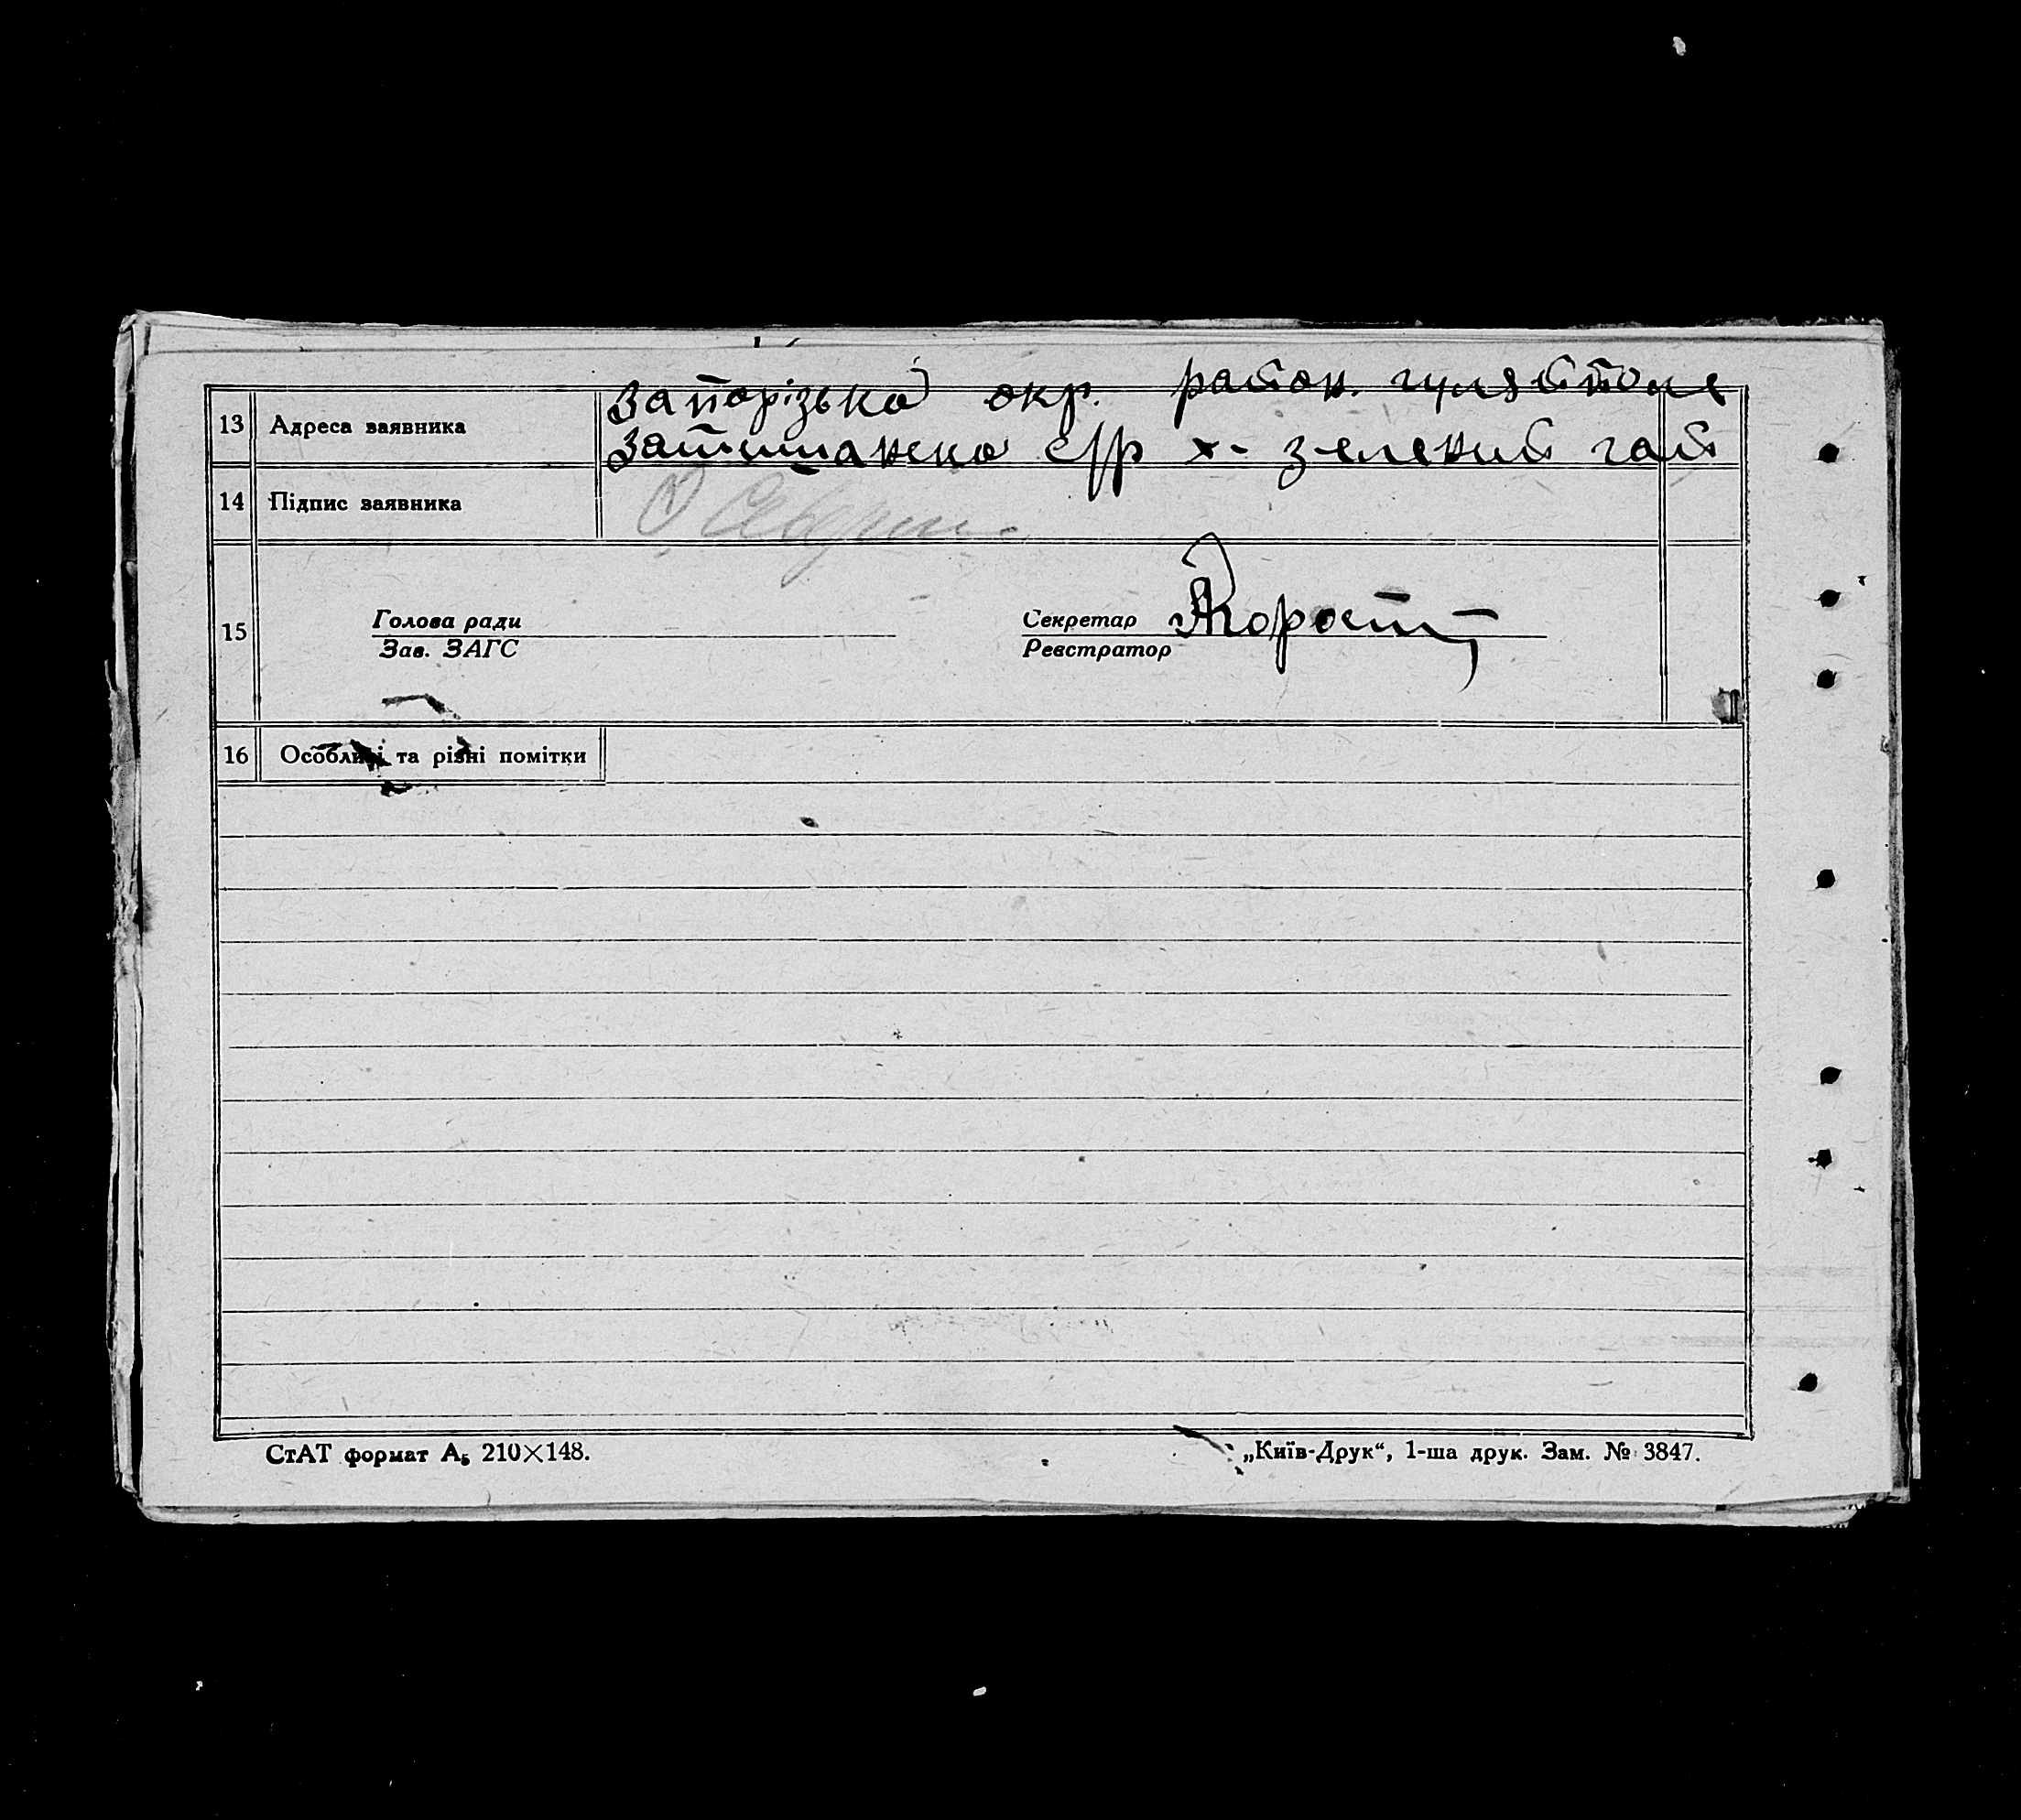 запорізька окр. район. гуляйполе
13 Адреса заявника
затишанска с/р х- зелений гай
14 Підпис заявника
15 Голова ради Секретар
Зав. ЗАГС Реєстратор
16 Особливі та різні помітки
СтАТ формат А₅ 210×148. „Київ-Друк“, 1-ша друк. Зам. № 3847.